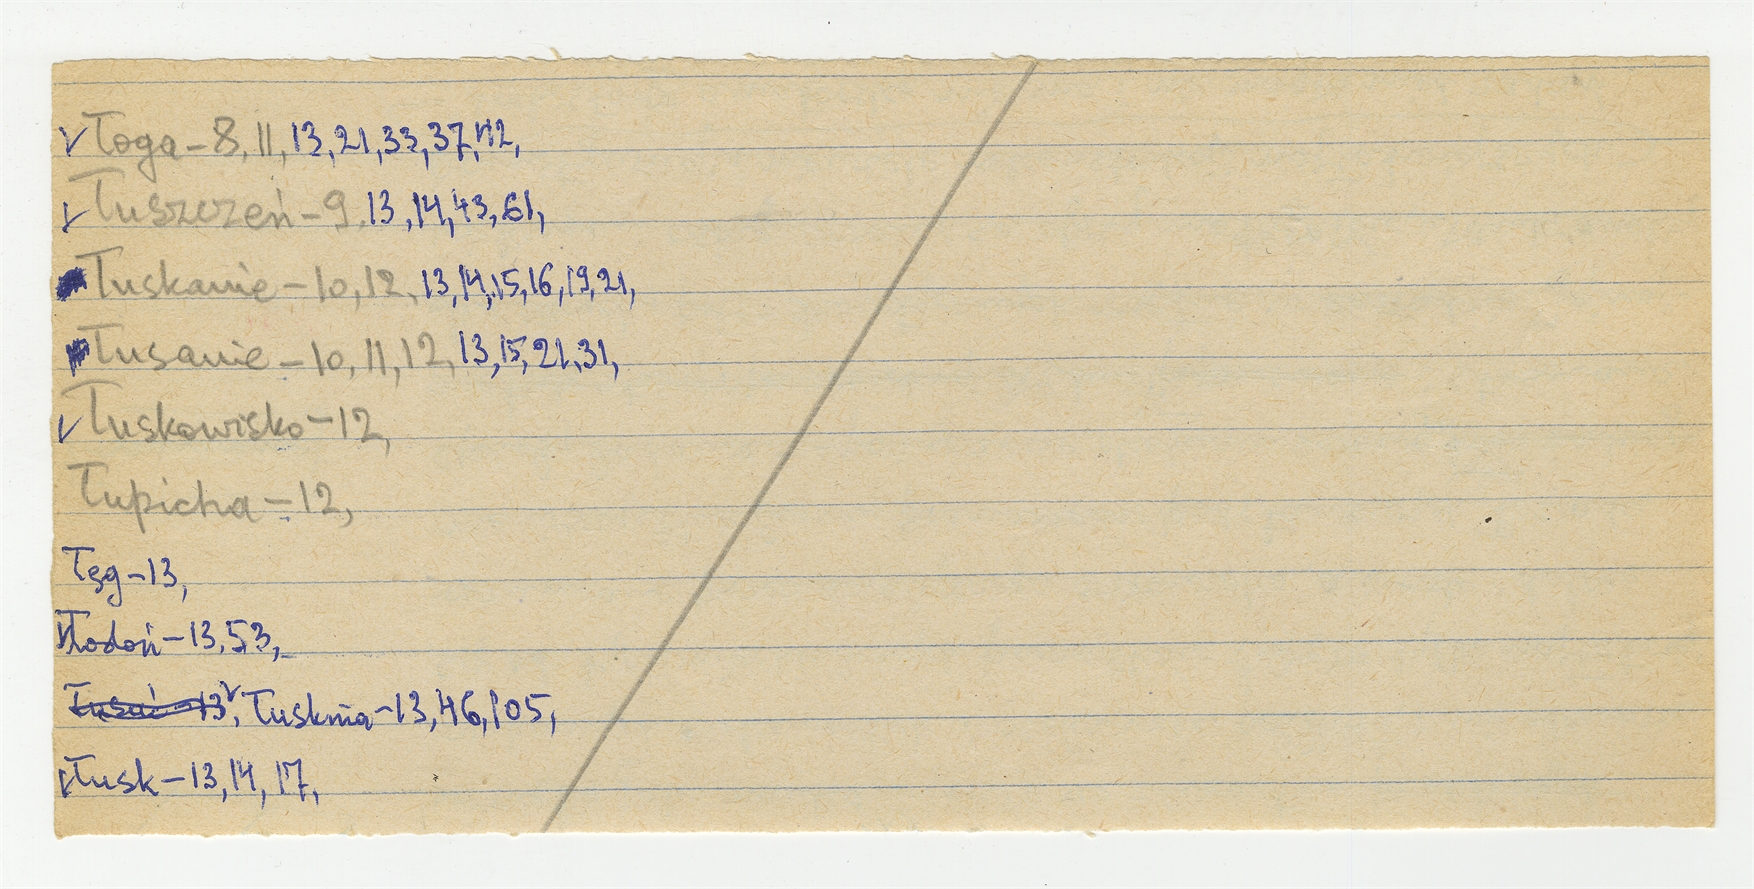 ✓ Łoga – 8, 11, 13, 21, 33, 37, 42,
✓ Łuszczeń – 9, 13, 14, 43, 61,
Łuskanie – 10, 12, 13, 14, 15, 16, 19, 21,
Łusanie – 10, 11, 12, 13, 15, 21, 31,
✓ Łuskowisko – 12,
Łupicha – 12,
Łęg – 13,
✓ Łodoń – 13, 53,
Łusań – 13, ✓ Łusknia – 13, 46, 105,
✓ Łusk – 13, 14, 17,